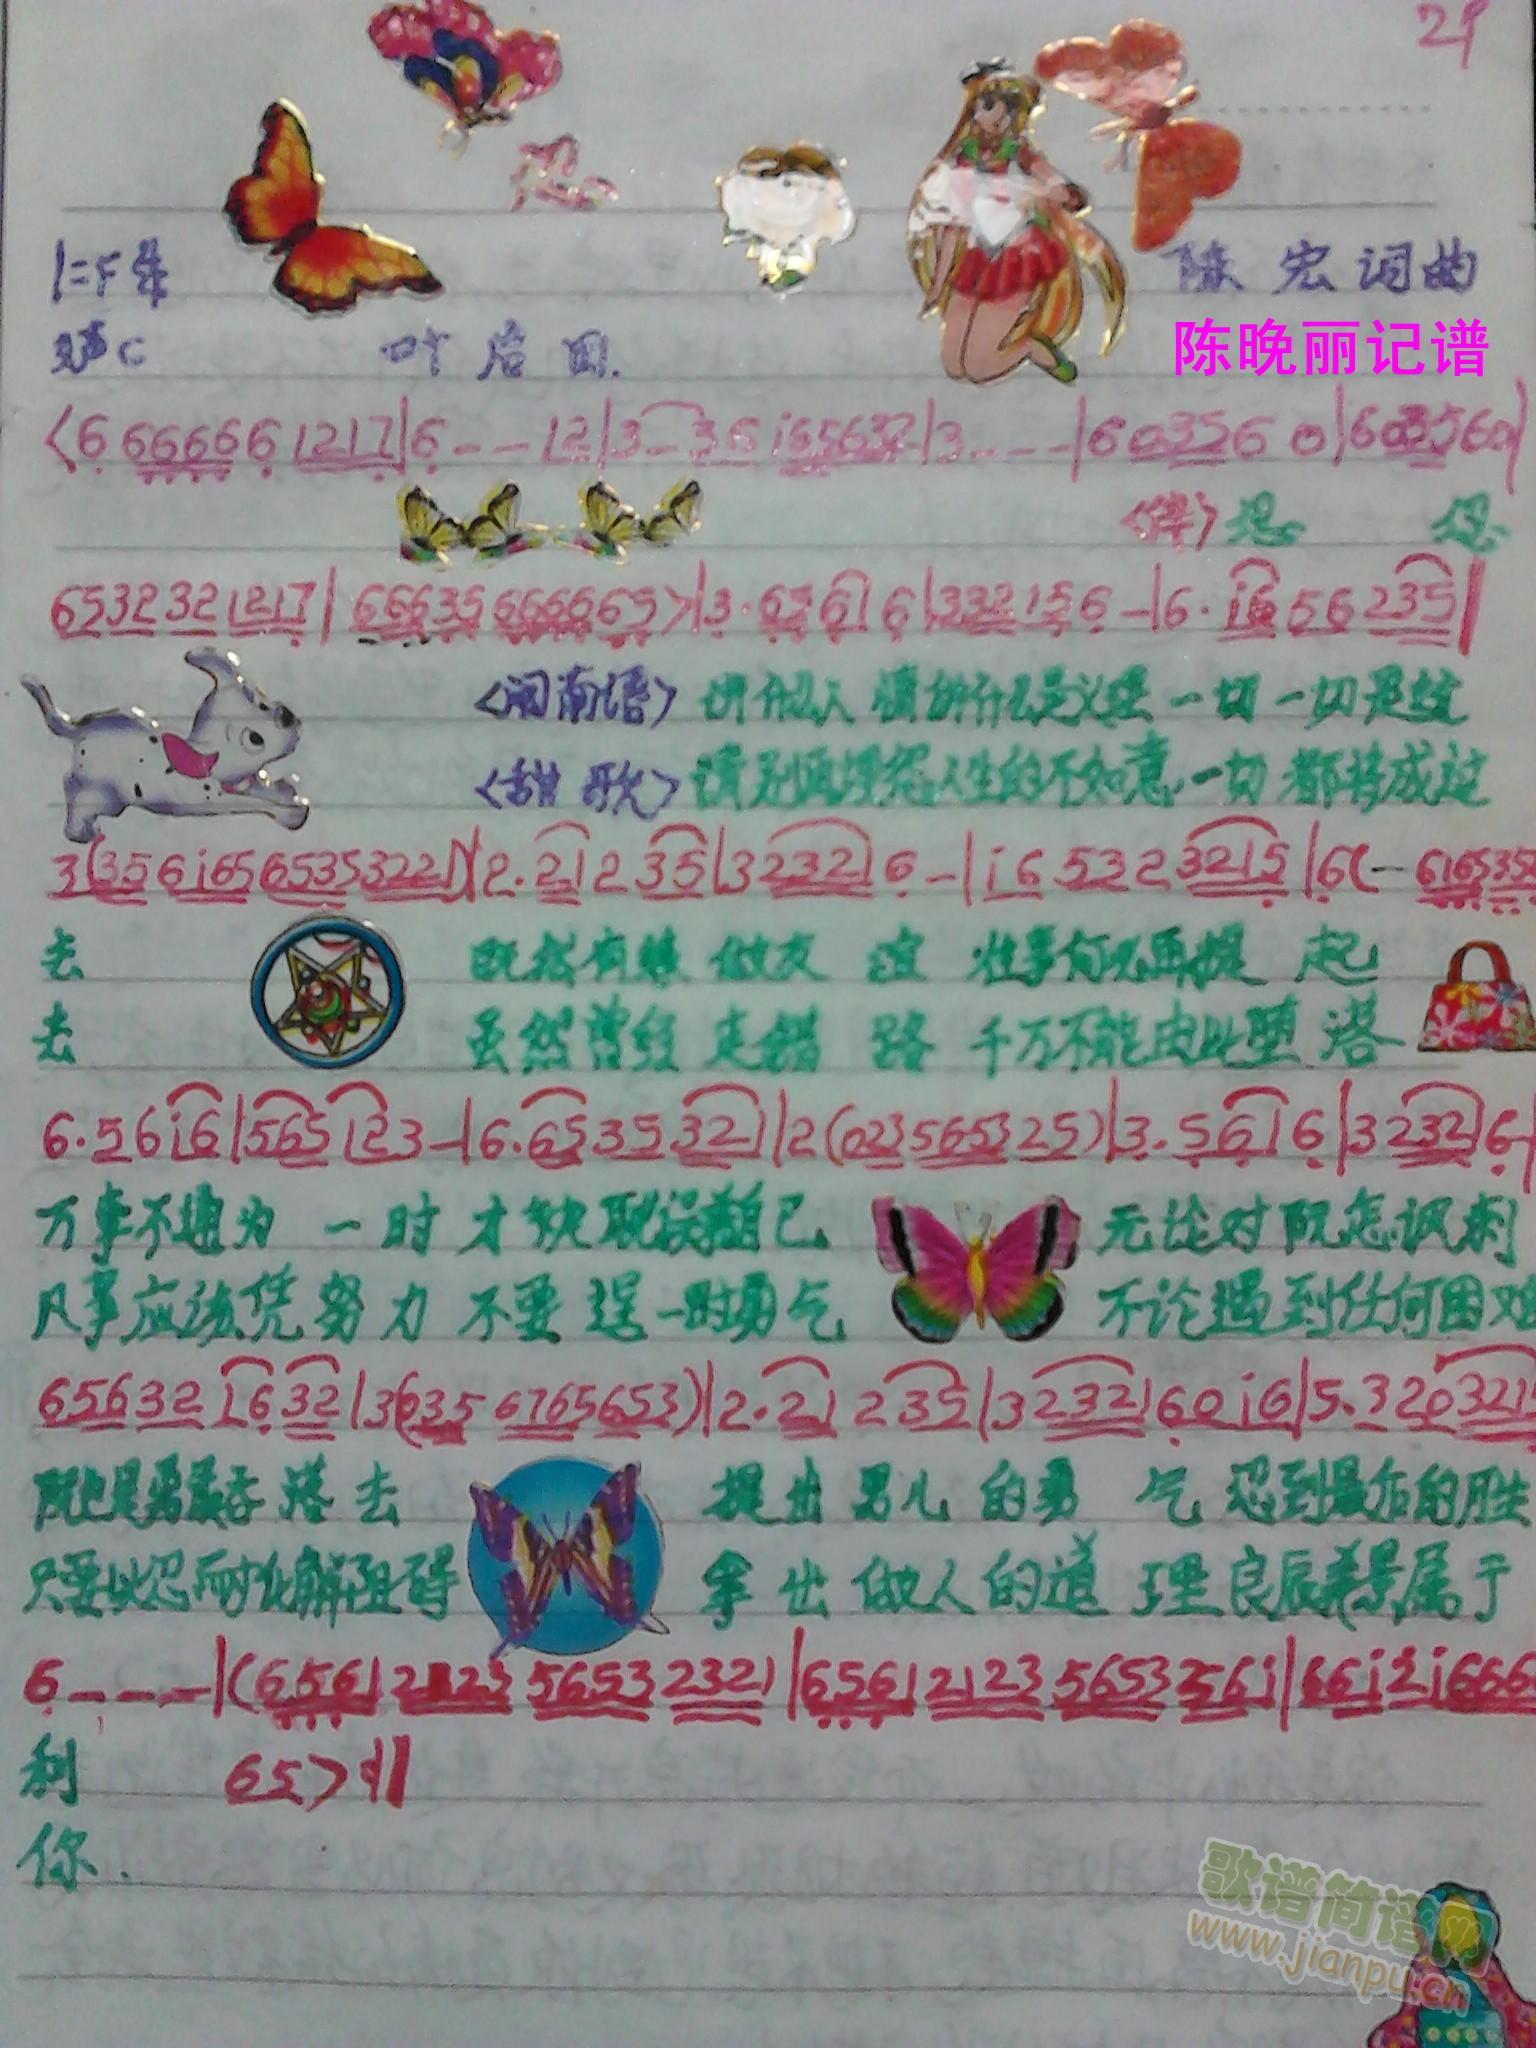 21
忍
1=F 4/4
陈宏词曲
邓C
叶启田.
陈晚丽记谱
<6 66666 1217|6--12|3-36 i65637|3---|603560|603560|
<伴>忍 忍
65323217|66635666665>|3·6561 6|332156-|6·i656235|
<闽南语> 讲什么人情讲什么是义理一切一切是过
<甜歌> 请别再埋怨人生的不如意一切都将成过
3(356i6565353221)|2·21235|32321 6-|i6532 3215|6(--6165352
去 既然有缘做友谊 往事何必再提起
去 虽然曾经走错路 千万不能由此堕落
6·56i6|565123-|6·6535321|2(023565325)|3·561 6|32321 6-
万事不通为一时 才来耽误着自己 无论对阮怎讽刺
凡事应该凭努力 不要逞一时勇气 不论遇到任何困难
65632 1632|3(035 6765653)|2·21 235|32321 60i6|5·320321
阮也是勇敢吞落去 提出男儿的勇气 忍到最后的胜
只要以忍耐化解阻碍 拿出做人的道理 良辰美景属于
6---|(6561 2123 5653 2321|6561 2123 5653 256i|66i2i666
利 65>:‖
你.
歌谱简谱网
www.jianpu.cn